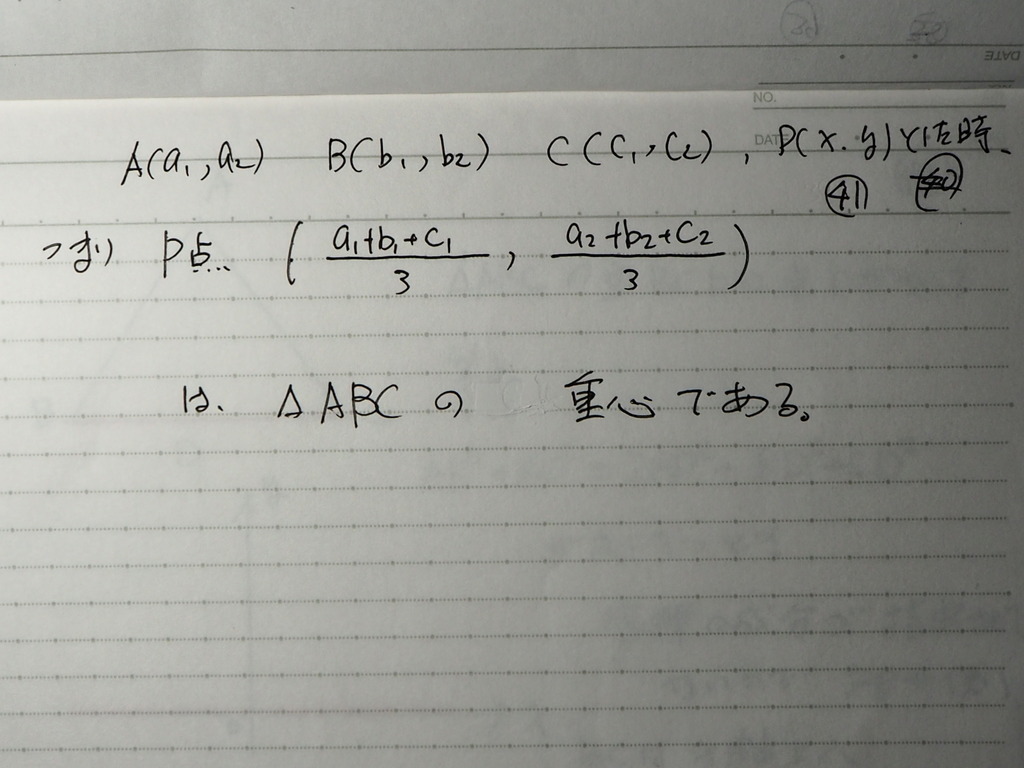 NO.
DATE
A(a₁,a₂) B(b₁,b₂) C(C₁,C₂),P(x.y)とした時、
㊶
つまり P点… (a₁+b₁+c₁/3, a₂+b₂+c₂/3)
は、△ABCの 重心である。